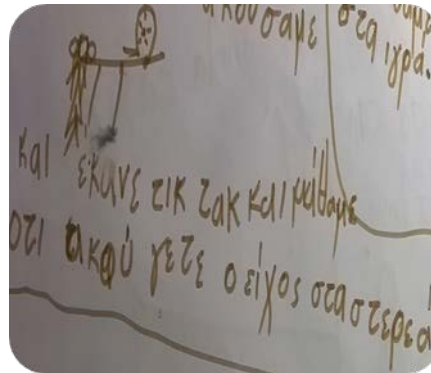 ακούσαμε στα ιγρά.
και έκανε τικ τακ και μάθαμε
οτι ακού γετε ο είχος στα στερεα